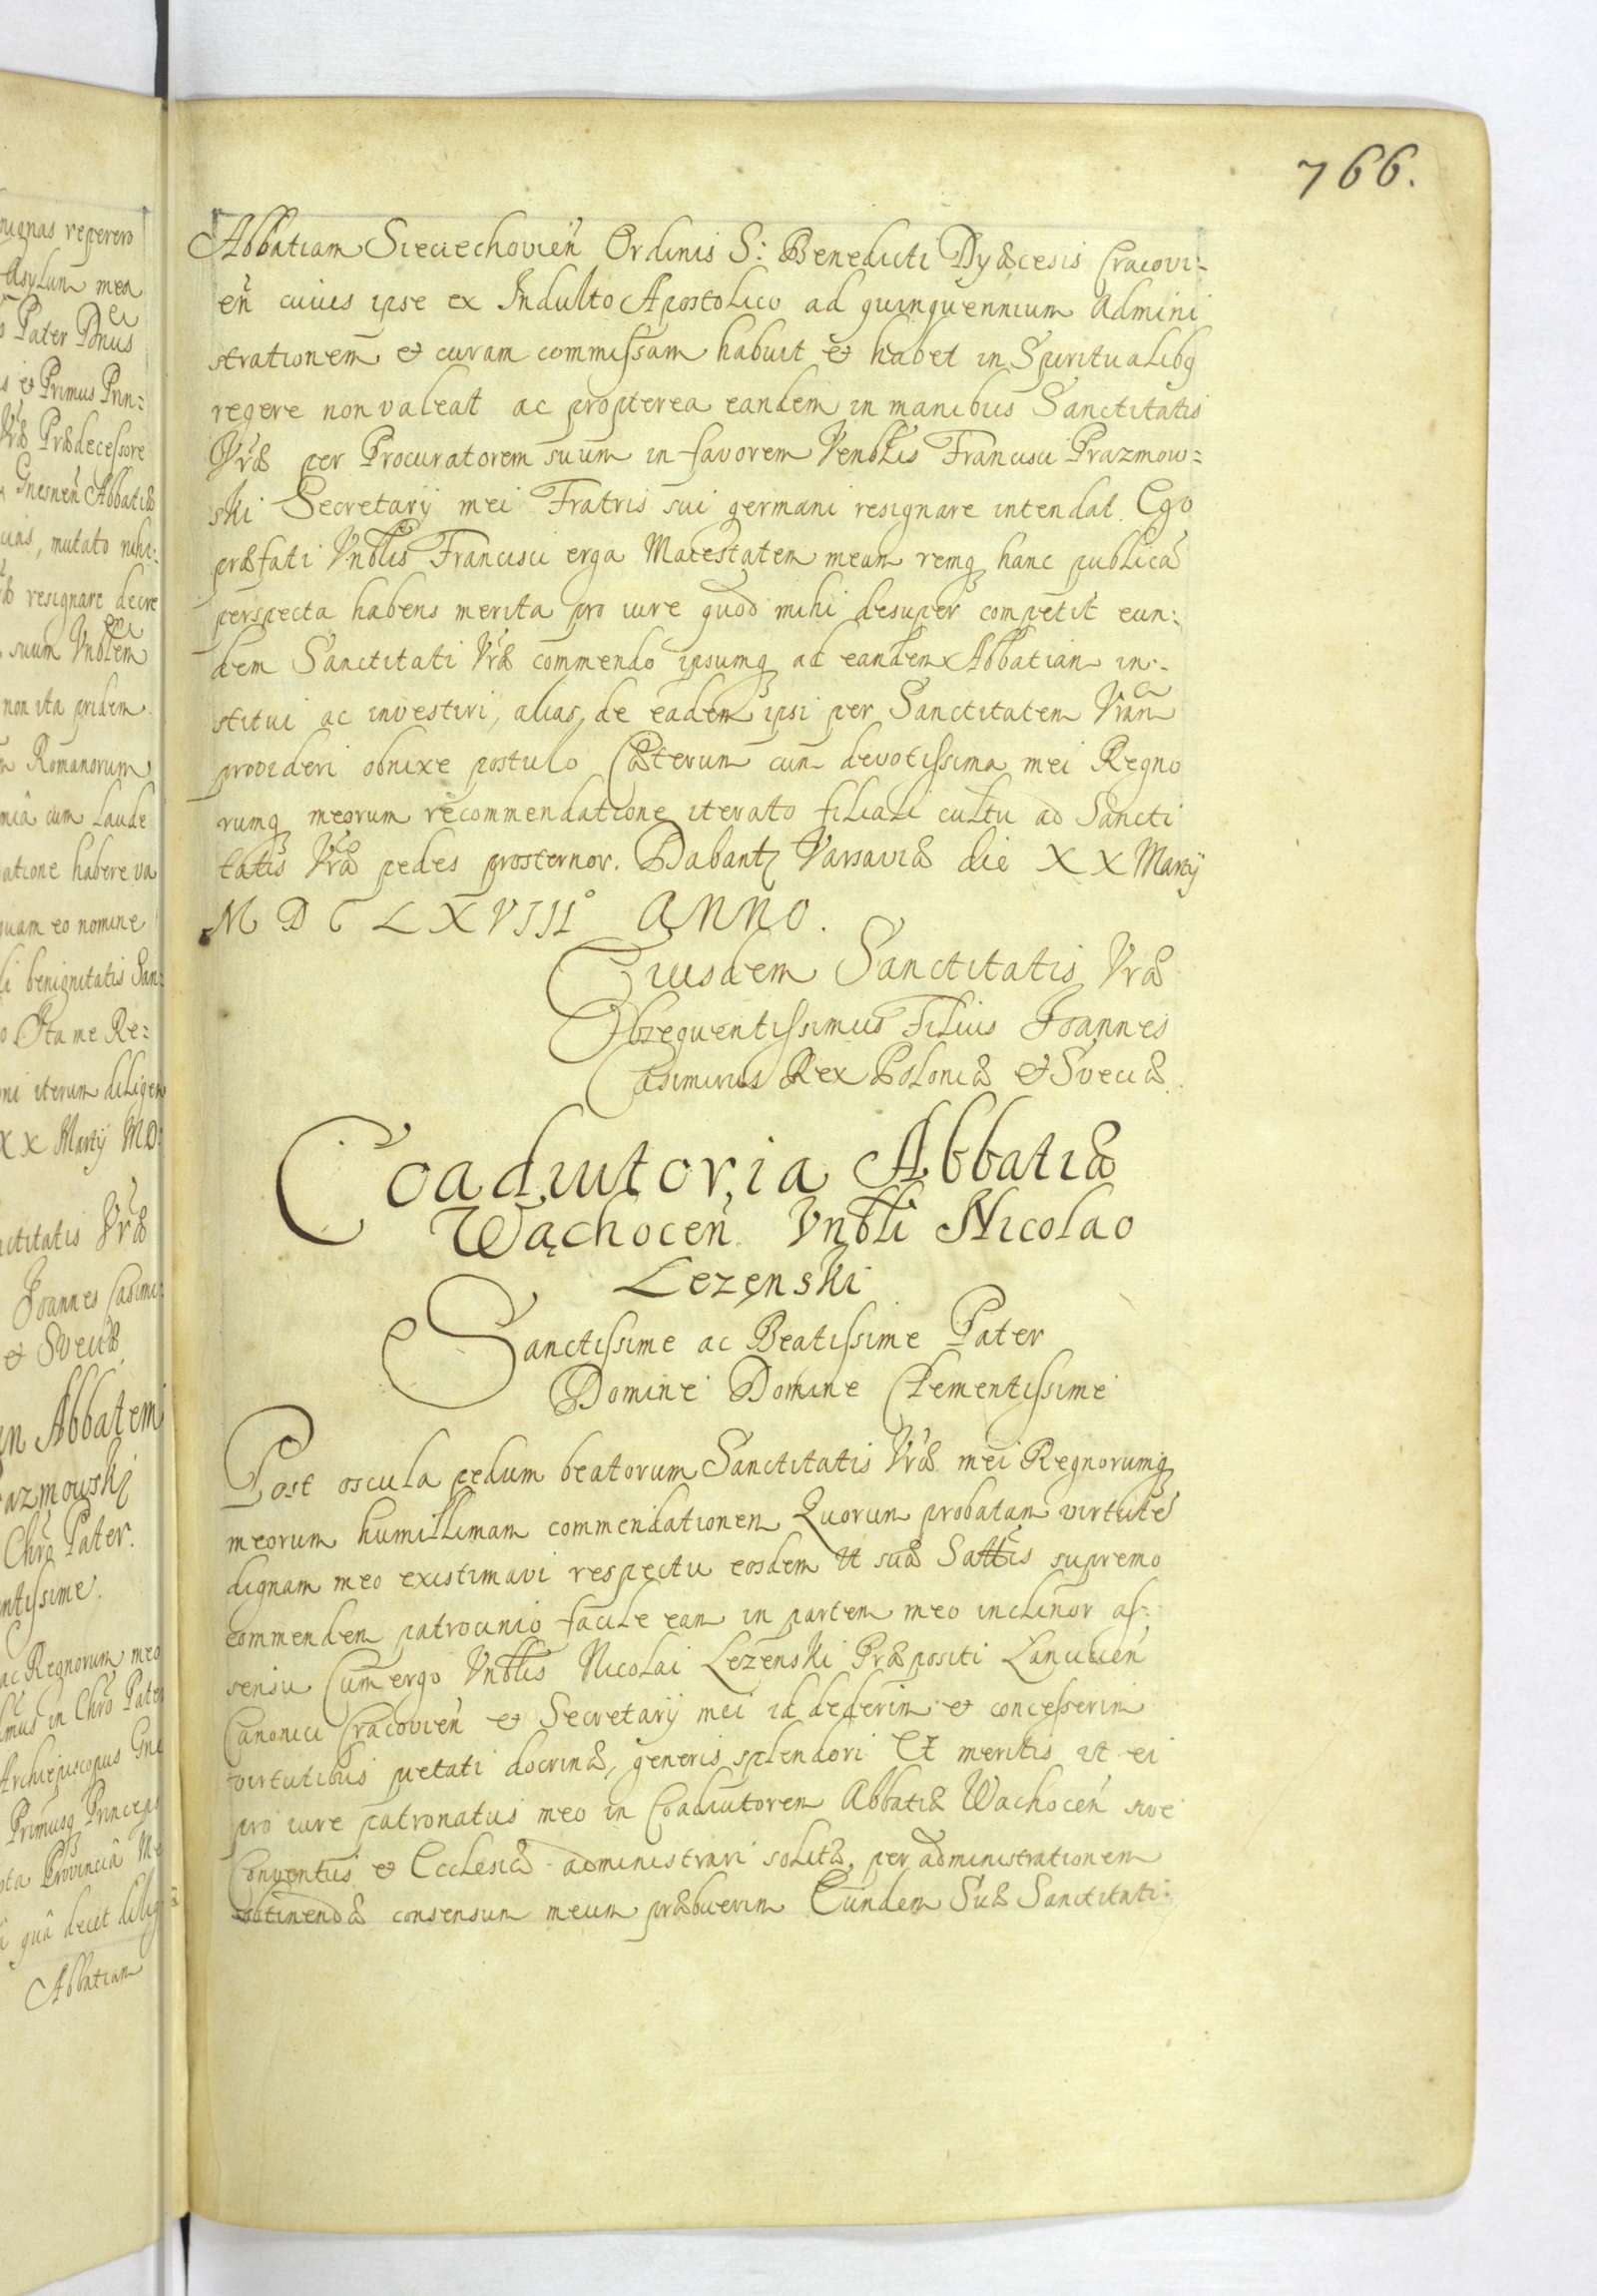 766.
Abbatiam Sieciechovień Ordinis S: Benedicti Dyæcesis Cracovi:
eń cuius ipse ex Indulto Apostolico ad quinquennium admini
strationem et curam commissam habuit et habet in Spiritualibq
regere non valeat ac propterea eandem in manibus Sanctitatis
Vræ per Procuratorem suum in favorem Venblis Francisci Prazmow:
ski Secretarij mei Fratris sui germani resignare intendat. Ego
præfati Vnblis Francisci erga Maiestatem meam remq hanc publicā
perspecta habens merita pro iure quod mihi desuper competit eun:
dem Sanctitati Vræ commendo ipsumq ad eandem Abbatiam in:
stitui ac investiri, alias de eadem ipsi per Sanctitatem Vram
provideri obnixe postulo Cæterum cum devotissima mei Regno
rumq meorum recommendatione iterato filiali cultu ad Sancti
tatis Vræ pedes prosternor. Dabantz Varsaviæ die XX Martij
M D C LXVIII° Anno.
Eiusdem Sanctitatis Vræ
Obsequentissimus Filius Joannes
Casimirus Rex Poloniæ et Sveciæ
Coadiutoria Abbatiæ
Wąchoceń Vnbli Nicolao
Lezęnski
Sanctissime ac Beatissime Pater
Domine Domine Clementissime
Post oscula pedum beatorum Sanctitatis Vræ mei Regnorumq
meorum humillimam commendationem Quorum probatam virtutē
dignam meo existimavi respectu eosdem ut suæ Sattis supremo
commendem patrocinio facile eam in partem meo inclinor as:
sensu Cum ergo Vnblis Nicolai Lezenski Præpositi Lancicień
Canonici Cracovień et Secretarij mei id dederim et concesserim
virtutibus pietati docrinæ, generis splendori Et meritis ut ei
pro iure patronatus meo in Coadiutorem Abbatiæ Wachoceń sive
Conventus et Ecclesiæ administrari solitæ, per administrationem
obtinendæ consensum meum præbuerim Eundem Suæ Sanctitati: